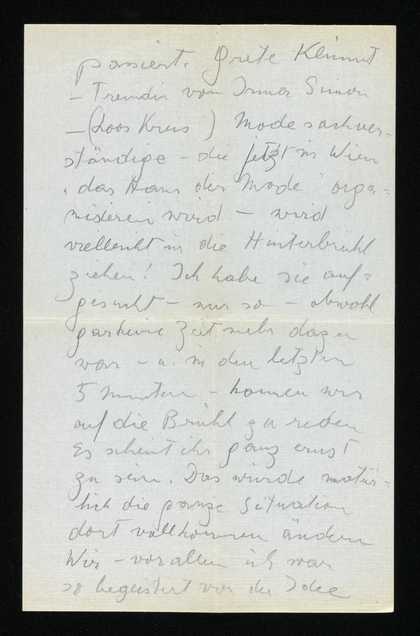 passiert. Grete Klimmt
– Freundin von Irma Simon
– (Loos Kreis) Modesachver-
ständige – die jetzt in Wien
"das Haus der Mode" orga-
nisieren wird – wird
vielleicht in die Hinterbrühl
ziehen! Ich habe sie auf-
gesucht – nur so – obwohl
gar keine Zeit mehr dazu
war – u. in den letzten
5 Minuten – kamen wir
auf die Brühl zu reden
Es scheint ihr ganz ernst
zu sein. Das würde natür-
lich die ganze Situation
dort vollkommen ändern
Wir – vor allem ich war
so begeistert von der Idee